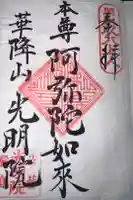 奉拝
本尊阿弥陀如來
華降山光明院